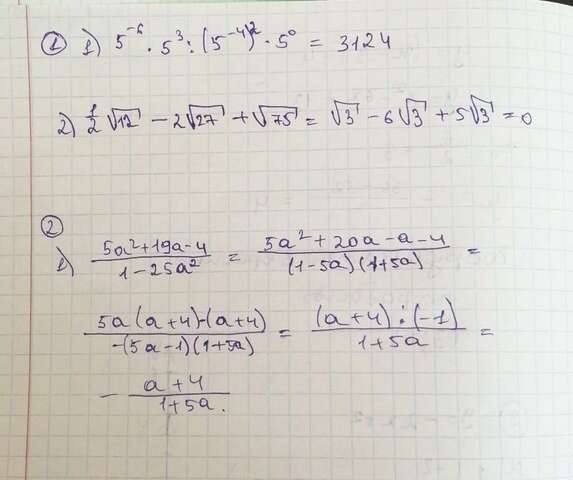 ① 1) 5⁻⁶ · 5³ : (5⁻⁴)² · 5⁰ = 3124
2) 1/2 √12 − 2√27 + √75 = √3 − 6√3 + 5√3 = 0
②
1) (5a² + 19a − 4)/(1 − 25a²) = (5a² + 20a − a − 4)/((1 − 5a)(1 + 5a)) =
(5a(a + 4) − (a + 4))/(−(5a − 1)(1 + 5a)) = ((a + 4) : (−1))/(1 + 5a) =
− (a + 4)/(1 + 5a).